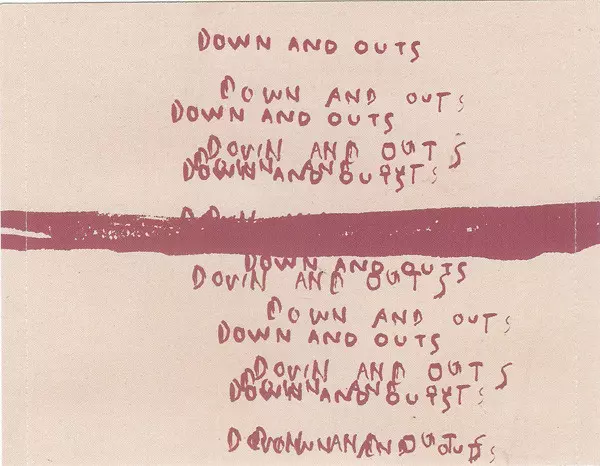 DOWN AND OUTS
DOWN AND OUTS
DOWN AND OUTS
DOWN AND OUTS
DOWN AND OUTS
DOWN
DOWN AND OUTS
DOWN AND OUTS
DOWN AND OUTS
DOWN AND OUTS
DOWN AND OUTS
DOWN AND OUTS